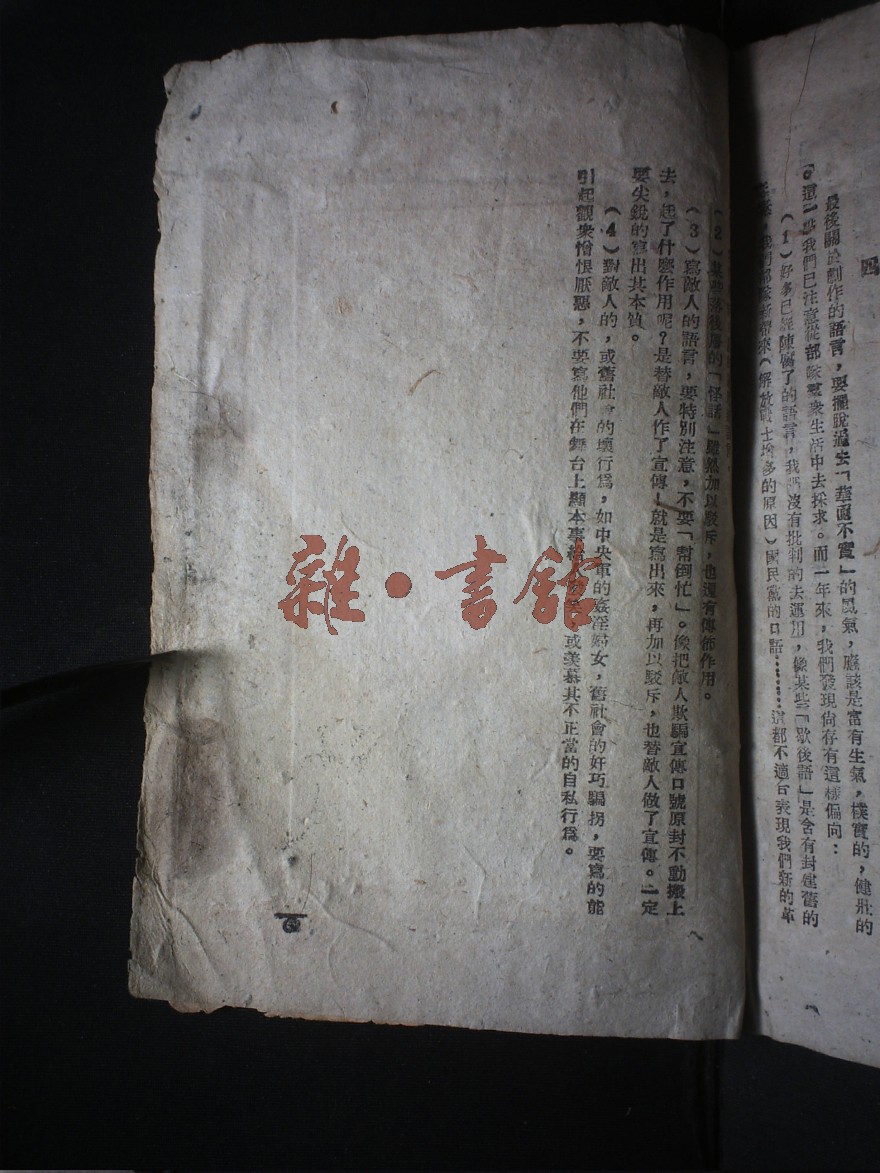 四
最後關於創作的語言，要擺脫過去「華而不實」的風氣，應該是富有生氣，樸實的，健壯的
。這一點我們已注意從部隊羣衆生活中去採求。而一年來，我們發現尙存有這樣偏向：
（1）好多已經陳腐了的語言，我們沒有批判的去運用，像某些「歇後語」是含有封建舊的
我們部隊新帶來（解放戰士增多的原因）國民黨的口語………這都不適合表現我們新的革
（2）某些落後層的「怪話」雖然加以駁斥，也還有傳佈作用。
（3）寫敵人的語言，要特別注意，不要「幫倒忙」。像把敵人欺騙宣傳口號原封不動搬上
去，起了什麼作用呢？是替敵人作了宣傳！就是寫出來，再加以駁斥，也替敵人做了宣傳。一定
要尖銳的寫出其本質。
（4）對敵人的，或舊社會的壞行爲，如中央軍的姦淫婦女，舊社會的奸巧騙拐，要寫的能
引起觀衆憎恨厭惡，不要寫他們在舞台上顯本事，或羨慕其不正當的自私行爲。
雜·書舘